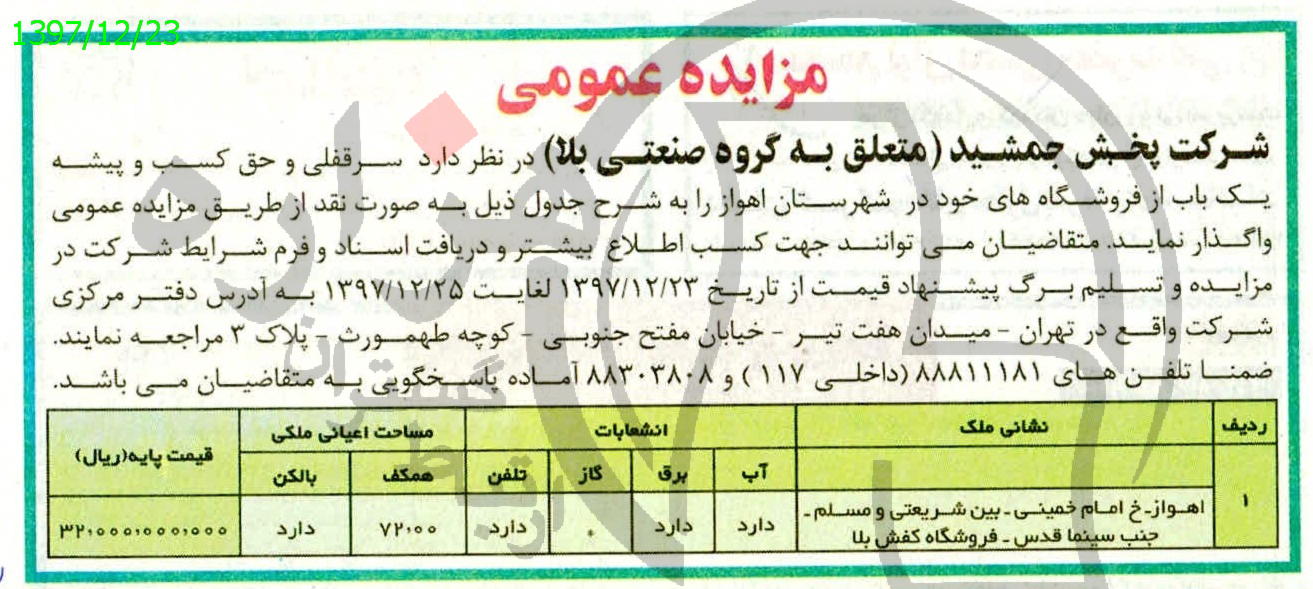 1397/12/23
مزایده عمومی
شرکت پخش جمشید (متعلق به گروه صنعتی بلا) در نظر دارد سرقفلی و حق کسب و پیشه
یک باب از فروشگاه های خود در شهرستان اهواز را به شرح جدول ذیل به صورت نقد از طریق مزایده عمومی
واگذار نماید. متقاضیان می توانند جهت کسب اطلاع بیشتر و دریافت اسناد و فرم شرایط شرکت در
مزایده و تسلیم برگ پیشنهاد قیمت از تاریخ ۱۳۹۷/۱۲/۲۳ لغایت ۱۳۹۷/۱۲/۲۵ به آدرس دفتر مرکزی
شرکت واقع در تهران - میدان هفت تیر - خیابان مفتح جنوبی - کوچه طهمورث - پلاک ۳ مراجعه نمایند.
ضمنا تلفن های ۸۸۸۱۱۱۸۱ (داخلی ۱۱۷ ) و ۸۸۳۰۳۸۰۸ آماده پاسخگویی به متقاضیان می باشد.
ردیف نشانی ملک انشعابات مساحت اعیانی ملکی قیمت پایه(ریال)
آب برق گاز تلفن همکف بالکن
۱ اهواز- خ امام خمینی - بین شریعتی و مسلم - دارد دارد ۰ دارد ۷۲،۰۰ دارد ۳۲،۰۰۰،۰۰۰،۰۰۰
جنب سینما قدس - فروشگاه کفش بلا
هزاره
گستران
رتبه